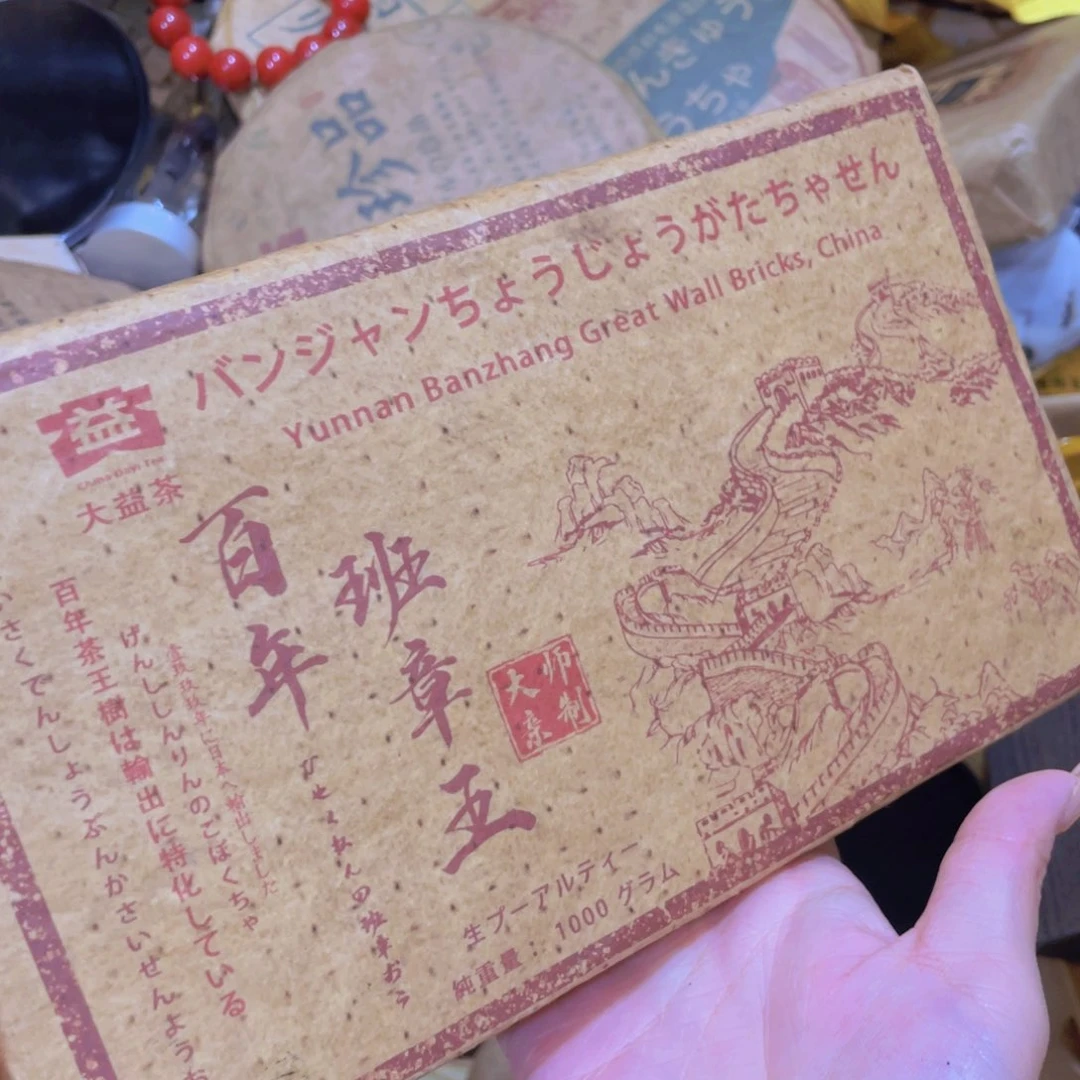 バンジャンちょうじょうがたちゃせん
Yunnan Banzhang Great Wall Bricks, China
益
大益茶
百年
班章王
大师
亲制
百年茶王樹は輸出に特化している
げんししんりんのごぼくちゃ
さくでんしょうぶんかさいせんよう
生プーアルティー
純重量：1000 グラム
品
珍
んきゅう
うちゃ